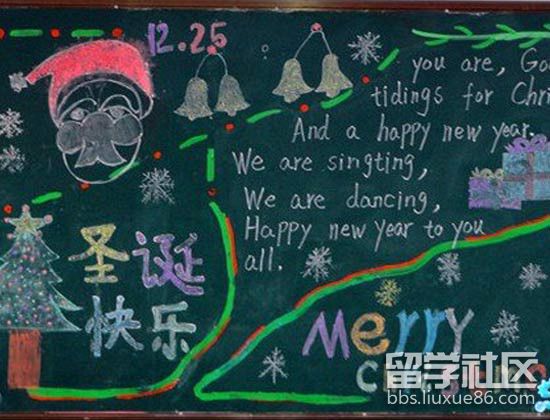 12.25
you are, Go
tidings for Chri
And a happy new year.
We are singting,
We are dancing,
Happy new year to you
all.
圣诞
快乐
Merry
留学社区
bbs.liuxue86.com